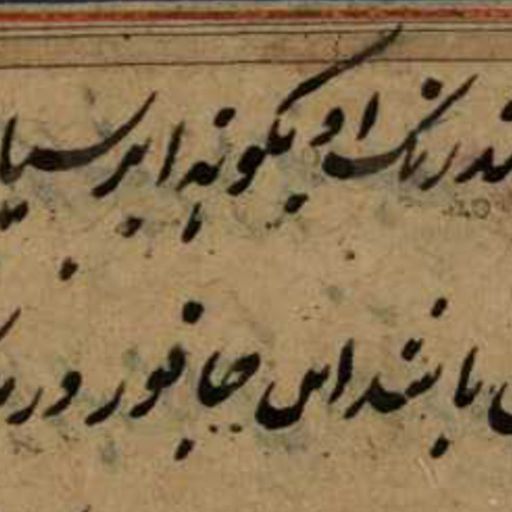 ند رنک او بکونه ابر سیا
باشد این جانور در